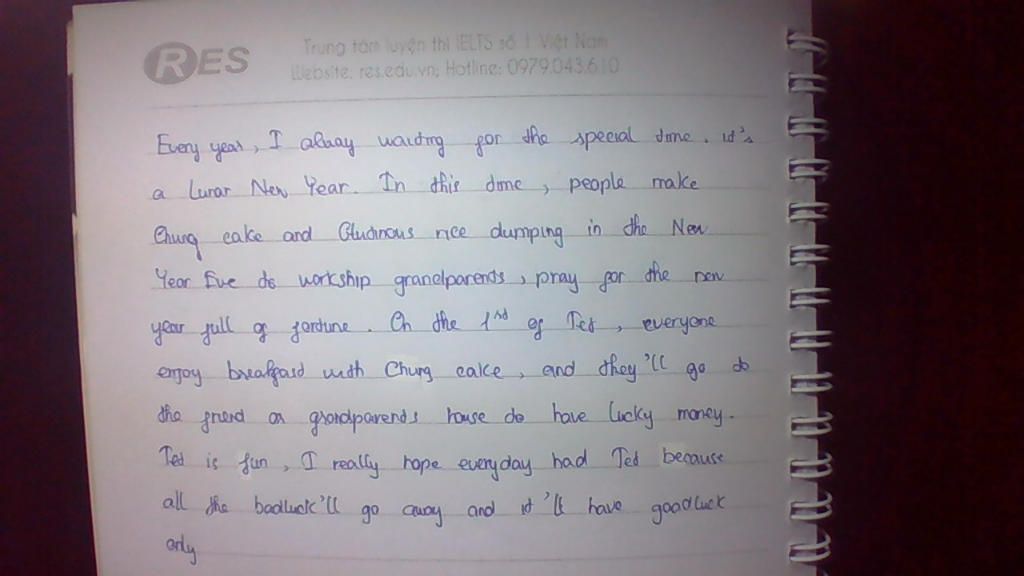 RES
Trung tâm luyện thi IELTS số 1 Việt Nam
Website: res.edu.vn; Hotline: 0979.043.610
Every year, I alway waiting for the special time. it's
a Lunar New Year. In this time, people make
Chung cake and Glutinous rice dumping in the New
Year Eve to workship grandparents, pray for the new
year full of fortune. On the 1nd of Tet, everyone
enjoy breakfast with Chung cake, and they'll go to
the friend or grandparents house to have lucky money.
Tet is fun, I really hope everyday had Tet because
all the badluck'll go away and it'll have goodluck
only